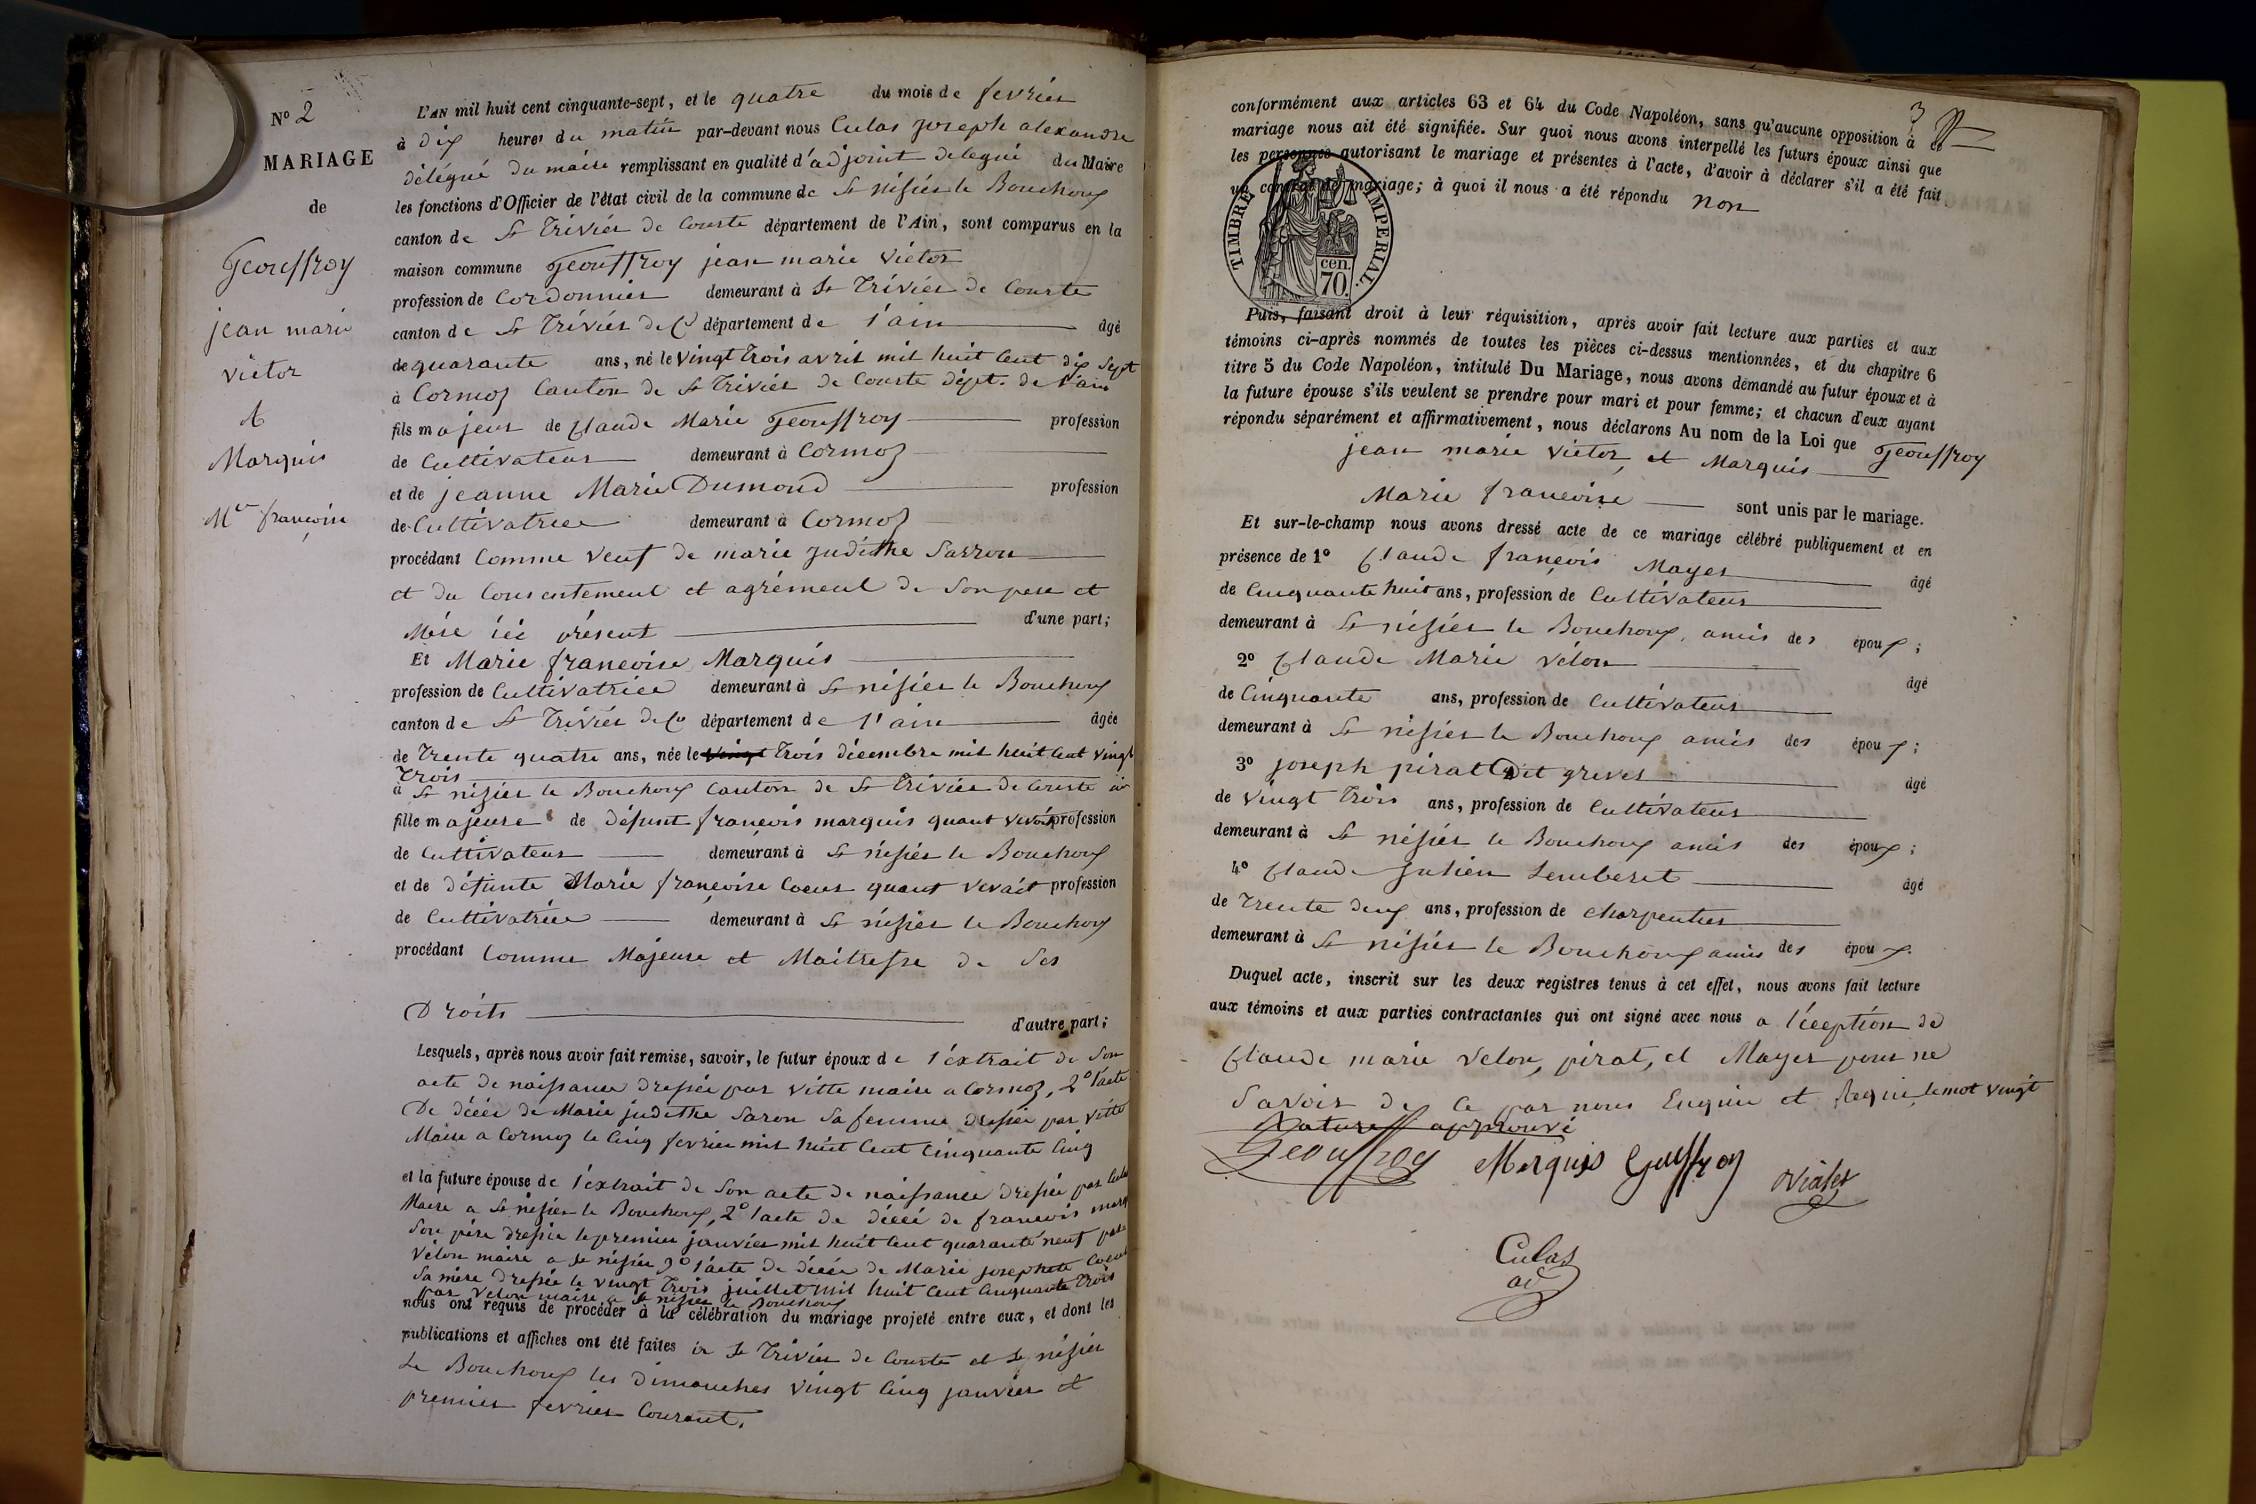 N° 2
MARIAGE
de
Geouffroy
jean marie
victor
et
Marquis
Mie francoise
L'AN mil huit cent cinquante-sept, et le quatre du mois de fevrier
à dix heures du matin par-devant nous Culas joseph alexandre
délégué du maire remplissant en qualité d'adjoint delegué du Maire
les fonctions d'Officier de l'état civil de la commune de St nisier le Bouchoux
canton de St Trivier de Courte département de l'Ain, sont comparus en la
maison commune Geouffroy jean marie victor
profession de Cordonnier demeurant à St Trivier de Courte
canton de St Trivier de C département de l'ain âgé
de quarante ans, né le vingt trois avril mil huit Cent dix sept
à Cormoz Canton de St Trivier de Courte dépt. de l'ain
fils majeur de Claude Marie Geouffroy profession
de Cultivateur demeurant à Cormoz
et de jeanne Marie Dumond profession
de Cultivatrice demeurant à Cormoz
procédant Comme veuf de marie judithe Sarron
et du Consentement et agrément de Son pere et
Mére ici présent d'une part;
Et Marie francoise Marquis
profession de Cultivatrice demeurant à St nisier le Bouchoux
canton de St Trivier de Co département de l'ain âgée
de Trente quatre ans, née le vingt trois décembre mil huit Cent vingt
Trois
à St nizier le Bouchoux Canton de St Trivier de Courte ain
fille majeure de défunt françois marquis quant vivait profession
de Cultivateur demeurant à St nisier le Bouchoux
et de défunte Marie françoise Coeur quant vivait profession
de Cultivatrice demeurant à St nisier le Bouchoux
procédant Comme Majeure et Maitresse de Ses
Droits d'autre part;
Lesquels, après nous avoir fait remise, savoir, le futur époux de l'éxtrait de Son
acte de naissance dressée par vitte maire a Cormoz, 2° l'acte
De décée de Marie judithe Saron Sa femme dressée par vitte
Maire a Cormoz le Cinq fevrier mil huit Cent Cinquante Cinq
et la future épouse de l'éxtrait de Son acte de naissance dressée par Culas
Maire a St nisier le Bouchoux, 2° l'acte de décée de francois marq
Son père dressée le premier janvier mil huit Cent quarante neuf par
Vélon maire a St nisier 3° l'acte de décée de Marie josephete Coeur
Sa mère dressée le vingt Trois juillet mil huit Cent Cinquante Trois
par Velon maire a St nisier le Bouchoux
nous ont requis de procéder à la célébration du mariage projeté entre eux, et dont les
publications et affiches ont été faites a St Trivier de Courte et St nisier
Le Bouchoux les dimanches vingt Cinq janvier et
premier fevrier Courant.
3
conformément aux articles 63 et 64 du Code Napoléon, sans qu'aucune opposition à ce
mariage nous ait été signifiée. Sur quoi nous avons interpellé les futurs époux ainsi que
les personnes autorisant le mariage et présentes à l'acte, d'avoir à déclarer s'il a été fait
un contrat de mariage; à quoi il nous a été répondu non
TIMBRE IMPERIAL.
cen.
70.
Puis, faisant droit à leur réquisition, après avoir fait lecture aux parties et aux
témoins ci-après nommés de toutes les pièces ci-dessus mentionnées, et du chapitre 6
titre 5 du Code Napoléon, intitulé Du Mariage, nous avons demandé au futur époux et à
la future épouse s'ils veulent se prendre pour mari et pour femme; et chacun d'eux ayant
répondu séparément et affirmativement, nous déclarons Au nom de la Loi que Geouffroy
jean marie victor, et Marquis
Marie francoise sont unis par le mariage.
Et sur-le-champ nous avons dressé acte de ce mariage célébré publiquement et en
présence de 1° Claude françois Mayer âgé
de Cinquante huit ans, profession de Cultivateur
demeurant à St nisier le Bouchoux, amis des époux;
2° Claude Marie Vélon âgé
de Cinquante ans, profession de Cultivateur
demeurant à St nisier le Bouchoux amis des époux;
3° joseph pirat dit greves âgé
de vingt Trois ans, profession de Cultivateur
demeurant à St nisier le Bouchoux amis des époux;
4° Claude julien Lemberet âgé
de Trente deux ans, profession de charpentier
demeurant à St nisier le Bouchoux amis des époux.
Duquel acte, inscrit sur les deux registres tenus à cet effet, nous avons fait lecture
aux témoins et aux parties contractantes qui ont signé avec nous a l'éception de
Claude marie Velon, pirat, et Mayer pour ne
Savoir de Ce par nous Enquie et Requie le mot vingt
approuvé
Geouffroy Marquis Geuffroy
Culas
ad